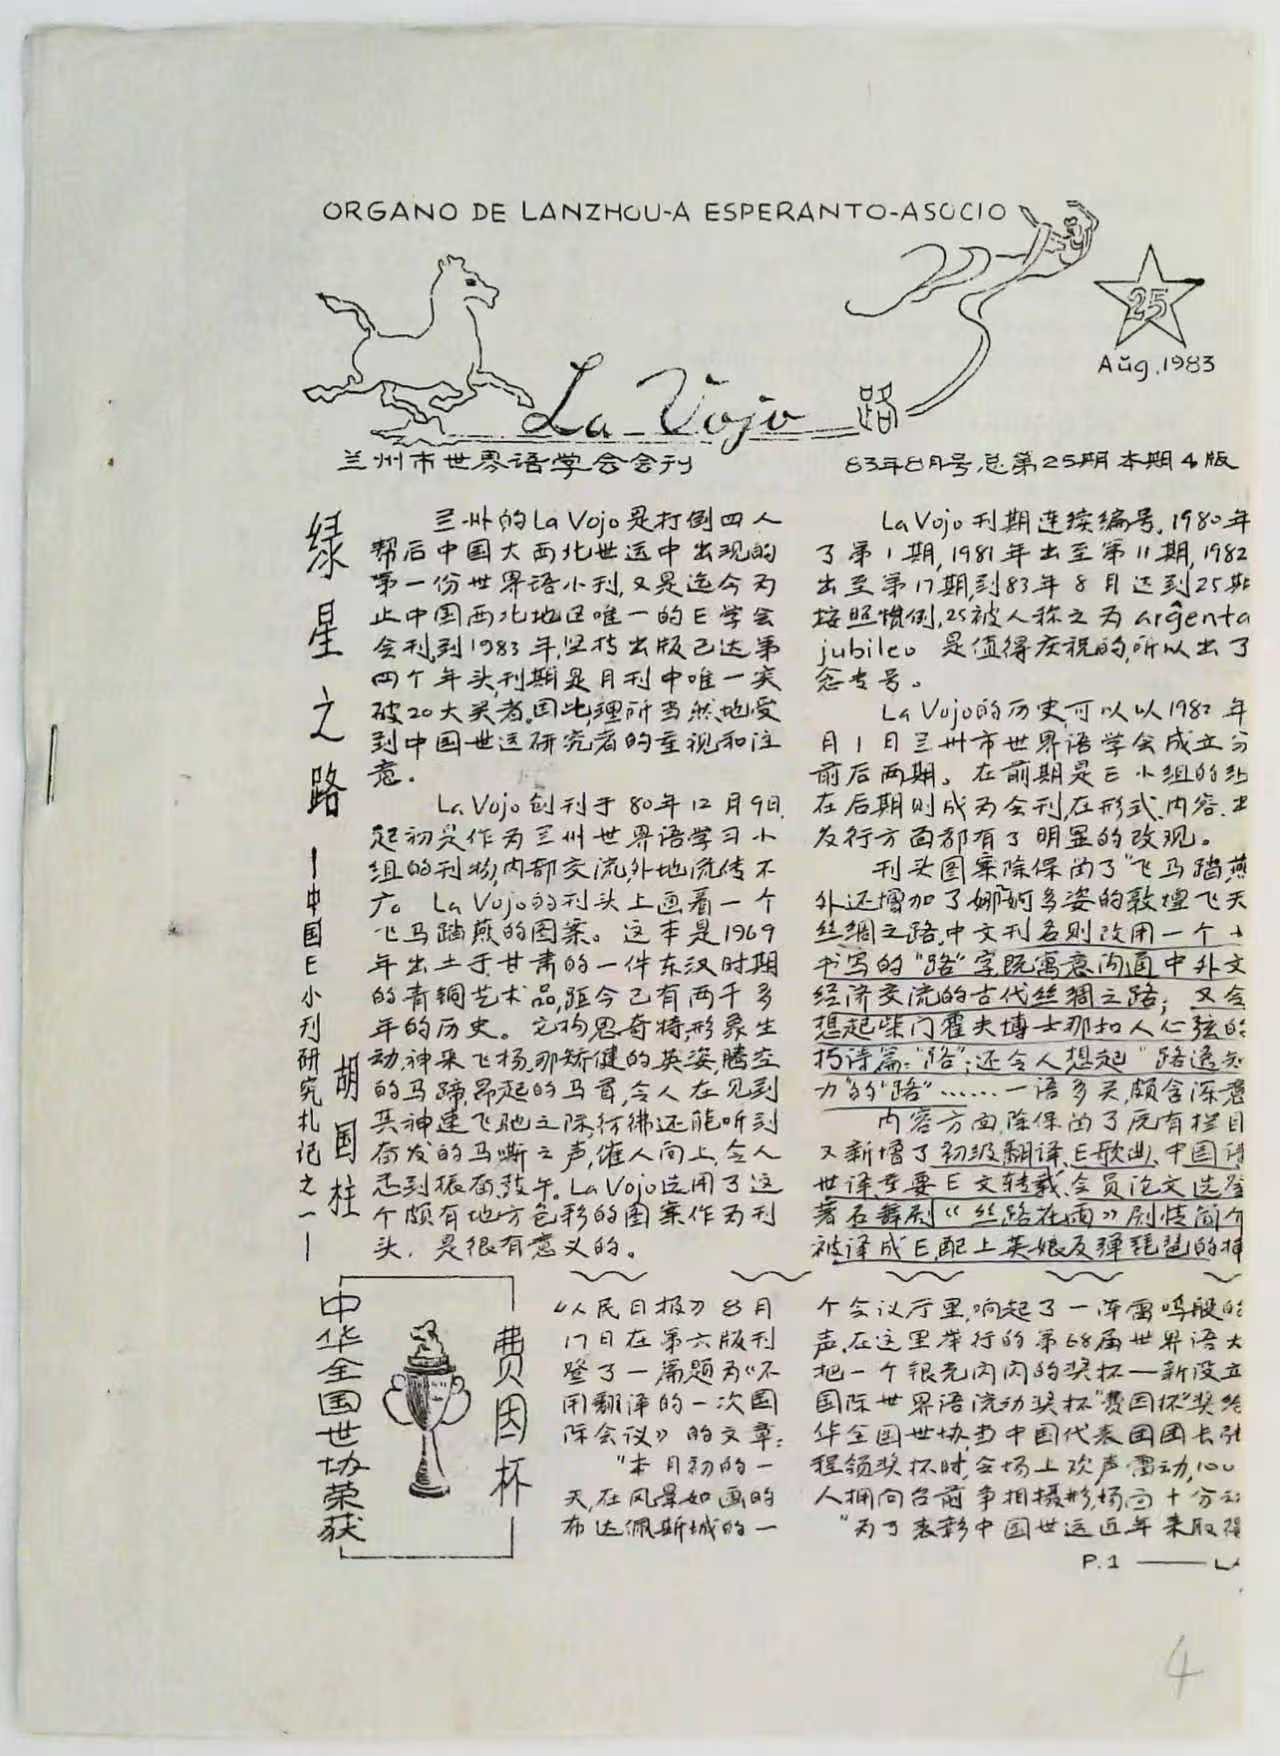 ORGANO DE LANZHOU-A ESPERANTO-ASOCIO
25
Aŭg.1983
La Vojo 路
兰州市世界语学会会刊
83年8月号,总第25期本期4版
绿星之路
—中国E小刊研究札记之一—
胡国柱
兰州的La Vojo是打倒四人
帮后中国大西北世运中出现的
第一份世界语小刊,又是迄今为
止中国西北地区唯一的E学会
会刊,到1983年,坚持出版已达第
四个年头,刊期是月刊中唯一突
破20大关者。因此,理所当然地受
到中国世运研究者的重视和注
意.
La Vojo创刊于80年12月9日,
起初只作为兰州世界语学习小
组的刊物,内部交流,外地流传不
广。La Vojo的刊头上画着一个
飞马踏燕的图案。这本是1969
年出土于甘肃的一件东汉时期
的青铜艺术品,距今已有两千多
年的历史。它构思奇特,形象生
动,神采飞扬,那矫健的英姿,腾空
的马蹄,昂起的马首,令人在见到
其神速飞驰之际,彷彿还能听到
奋发的马嘶之声,催人向上,令人
感到振奋,鼓午。La Vojo选用了这
个颇有地方色彩的图案作为刊
头,是很有意义的。
La Vojo刊期连续编号,1980年
了第1期,1981年出至第11期,1982
出至第17期,到83年8月达到25期
按照惯例,25被人称之为arĝenta
jubileo 是值得庆祝的,所以出了
念专号。
La Vojo的历史,可以以1982年
月1日兰州市世界语学会成立分
前后两期。在前期是E小组的组
在后期则成为会刊,在形式、内容、
发行方面都有了明显的改观。
刊头图案除保留了"飞马踏燕
外还增加了婀娜多姿的敦煌飞天
丝绸之路,中文刊名则改用一个
书写的"路"字,既寓意沟通中外文
经济交流的古代丝绸之路;又令
想起柴门霍夫博士那扣人心弦的
朽诗篇:"路";还令人想起"路遥知
力"的"路"……一语多关,颇含深意
内容方面,除保留了原有栏目
又新增了初级翻译、E歌曲、中国诗
世译,重要E文转载,会员论文选登
著名舞剧《丝路花雨》剧情简介
被译成E,配上英娘反弹琵琶的插
中华全国世协荣获
费因杯
《人民日报》8月
17日在第六版刊
登了一篇题为《不
用翻译的一次国
际会议》的文章:
"本月初的一
天,在风景如画的
布达佩斯城的一
个会议厅里,响起了一阵雷鸣般的
声,在这里举行的第68届世界语大
把一个银光闪闪的奖杯—新设立
国际世界语流动奖杯"费因杯"奖给
华全国世协,当中国代表团团长张
程领奖杯时,会场上欢声雷动,100
人拥向台前争相摄影,场面十分动
"为了表彰中国世运近年来取得
P.1 ——
4